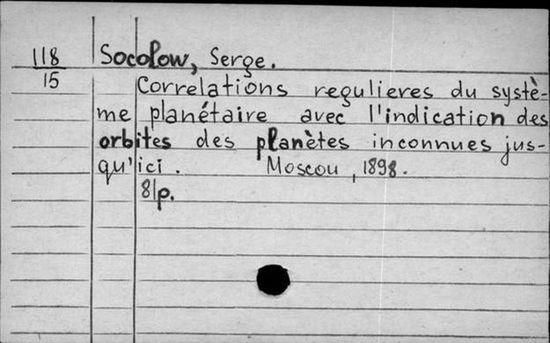 118 Socolow, Serge.
15 Correlations regulieres du systè-
me planétaire avec l'indication des
orbites des planètes inconnues jus-
qu'ici. Moscou, 1898.
81p.